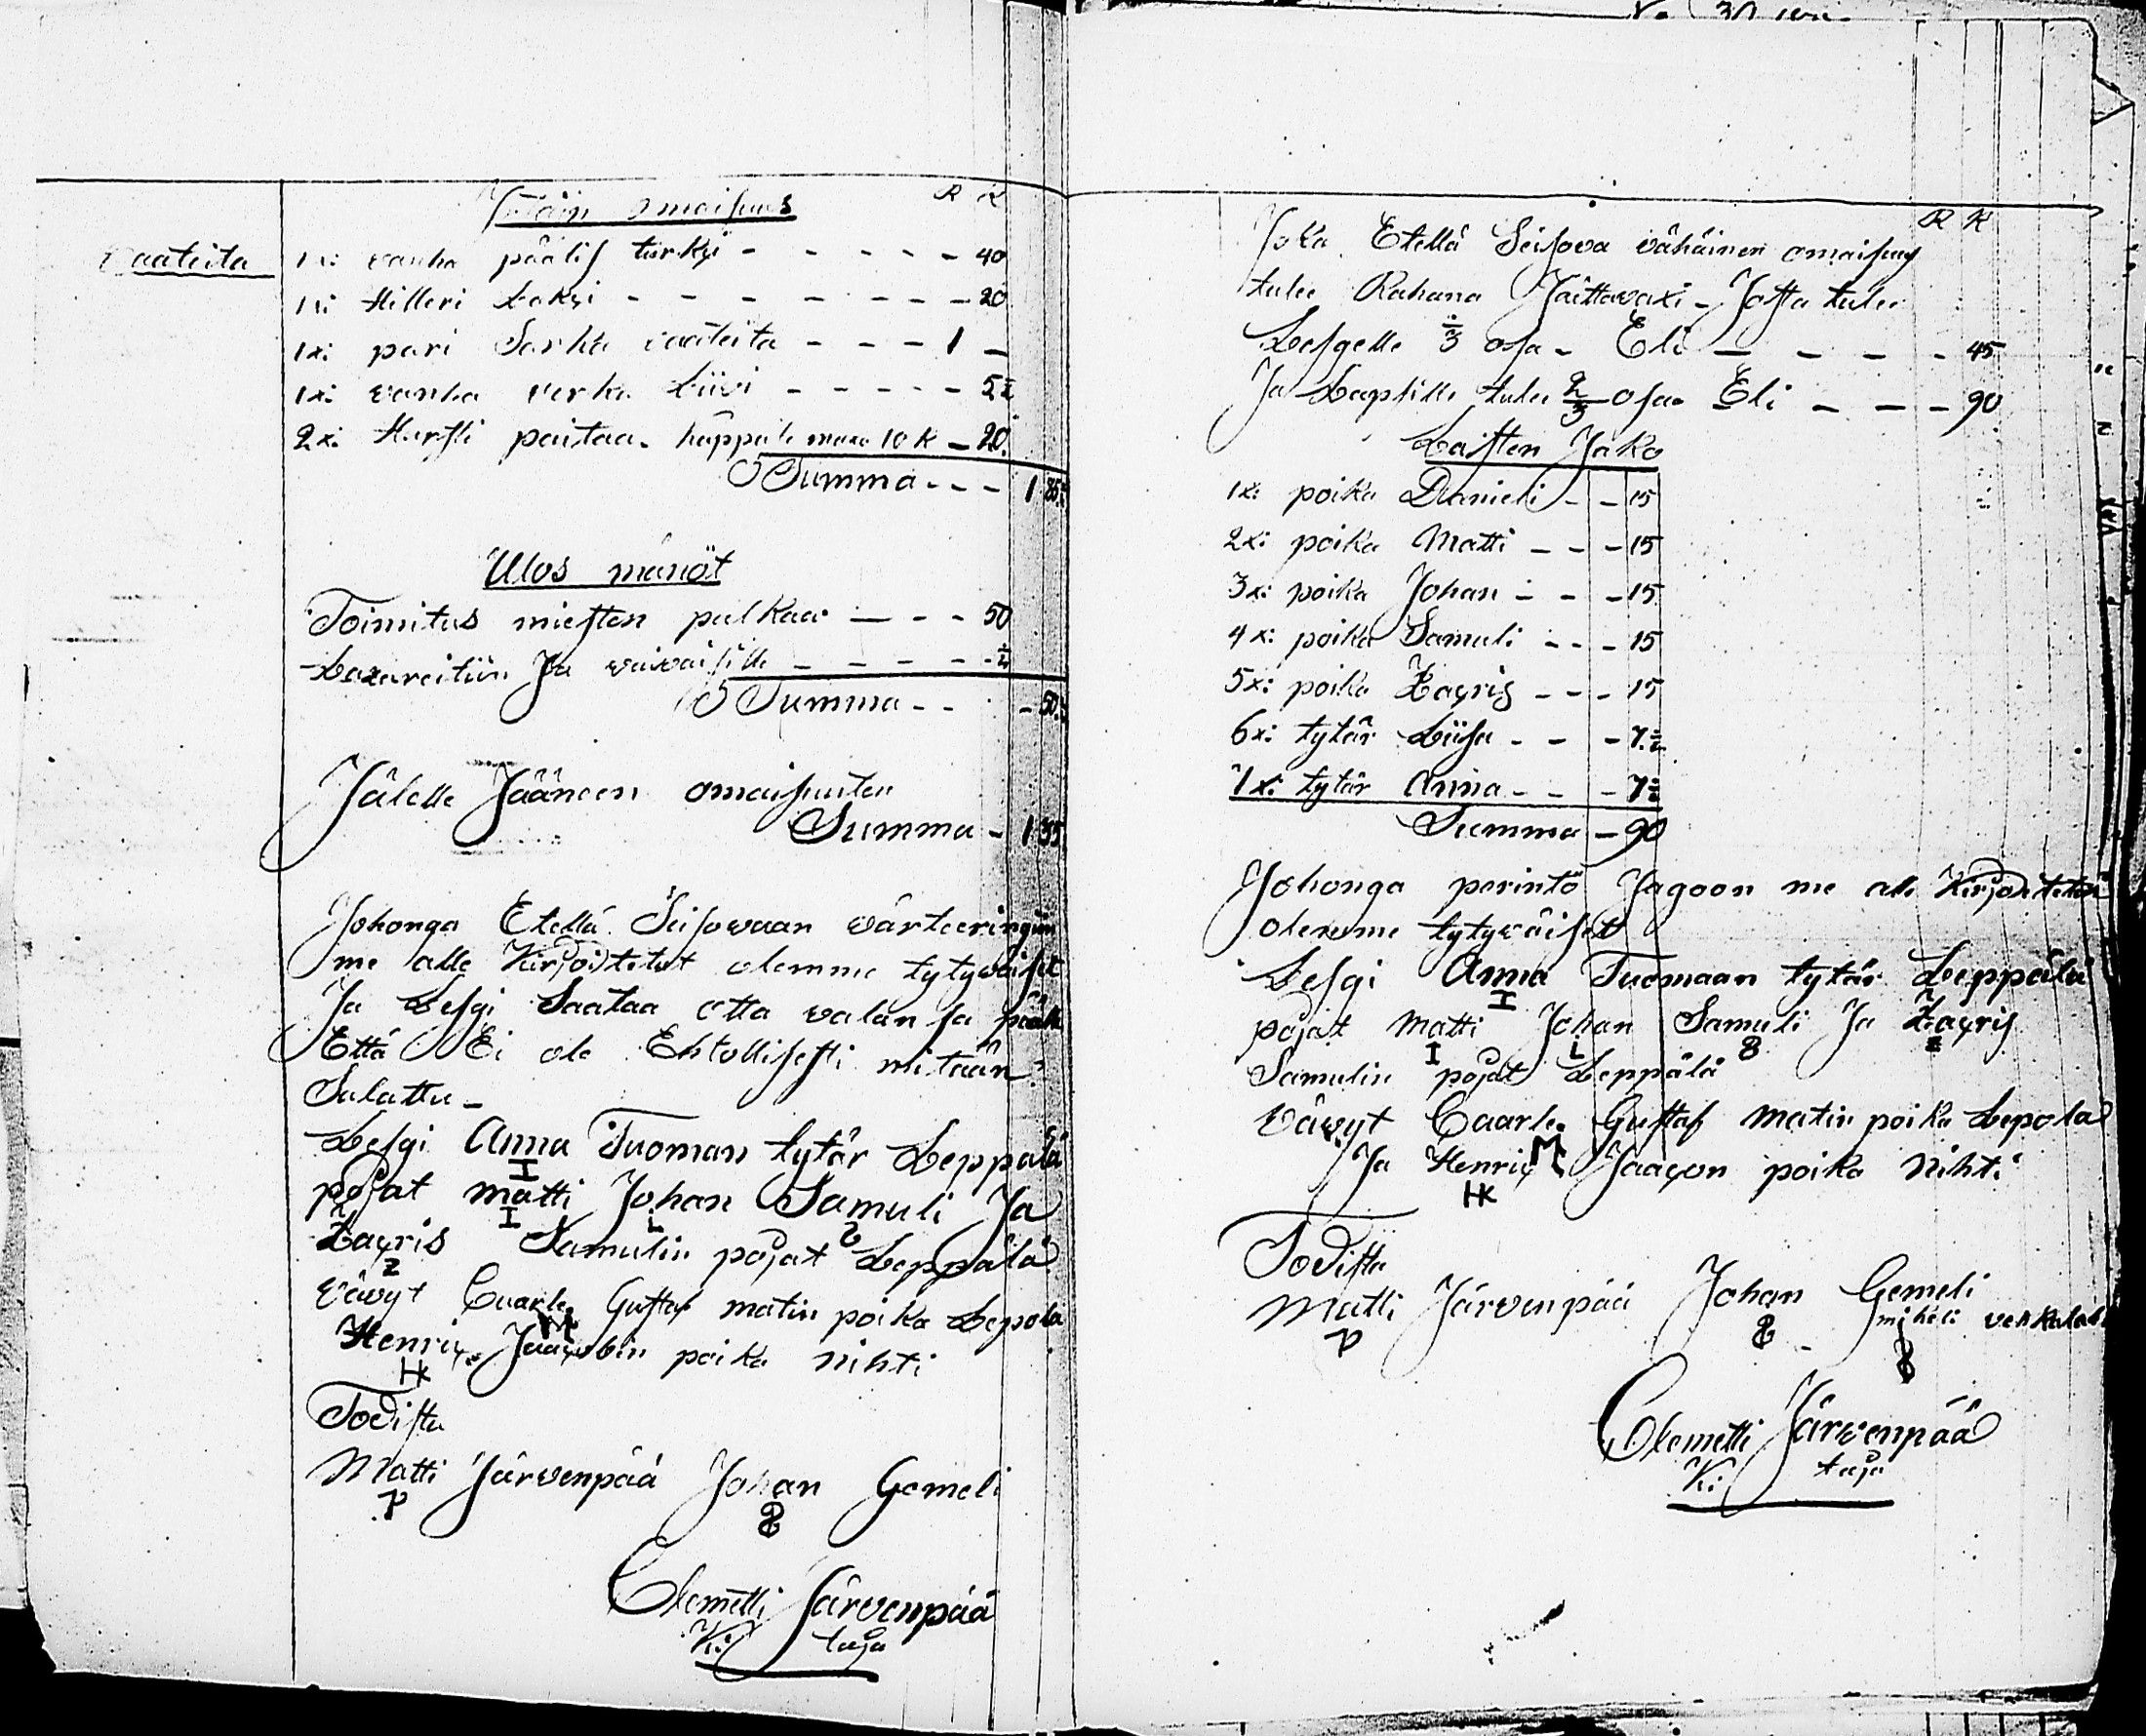 omaisuus R K
Vaateita 1xi vanha päälis turkki - - - - - 40
1xi Hilleri Lakki - - - - - - - 20
1xi pari Sarka vaateita - - - 1 -
1xi vanha verka Liivi - - - - - 5½
2xi Hursti paitaa. käppäle maxa 10 K - 20
Summa - - - 1 85½
Ulos mänöt
Toimitus miesten palkaa — - - 50
Lazareitiin Ja waiwaisille - - - - - ½
Summa - - - 50½
Jälelle Jääneen omaisuuten
Summa - 1 35
Johonga Etellä Seisowaan wärteeringiin
me alle Kirjoitetut olemme tytywäiset
Ja Lesgi Saataa otta walan sa päälle
Että Ei ole Ehtollisesti mitään
Salattu -
Lesgi Anna Tuoman tytär Leppälä
I
pojat matti Johan Samuli Ja
I L 8
Zacris Samulin pojat Leppälä
Z
Väwyt Caarle Gustaf matin poika Lepola
M
Henric Jaacobin poika nihti
HK
Todista
Matti Järvenpää Johan Gemeli
P
Olemetti Järvenpää
K: taja
R K
Joka Etellä Seisova vähäinen omaisuus
tulee Rahana Jaittavaxi - Josta tulee
Lesgelle ⅓ osa - Eli - - - - 45
Ja Lapsille tulee ⅔ osa Eli - - - 90
Laisten Jako
1xi poika Danieli - - 15
2xi poika Matti - - - 15
3xi poika Johan - - - 15
4xi poika Samuli - - - 15
5xi poika Zacris - - - 15
6xi tytär Liisa - - - 7½
7xi tytär Anna - - - 7½
Summa - 90
Johonga perintö Jagoon me alle Kirjoitetut
olemme tytywäiset
Lesgi Anna Tuomaan tytär Leppälä
I
pojat Matti Johan Samuli Ja Zacris
I L 8 Z
Samulin pojat Leppälä
Väwyt Caarle Gustaf matin poika Lepola
M
Ja Henric Jaacon poika Nihti
HK
Todista
Matti Järvenpää Johan Gemeli
P miheli
Olemetti Järvenpää
K: taja